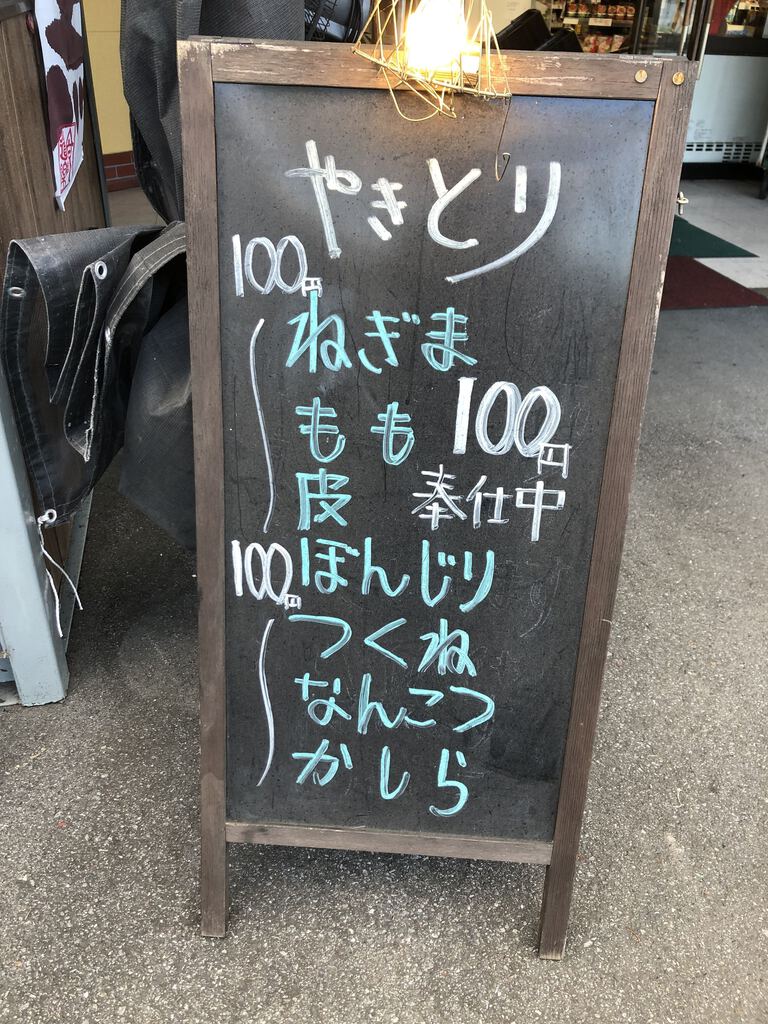 やきとり
100円
ねぎま
もも 100円
皮 奉仕中
100円 ぼんじり
つくね
なんこつ
かしら